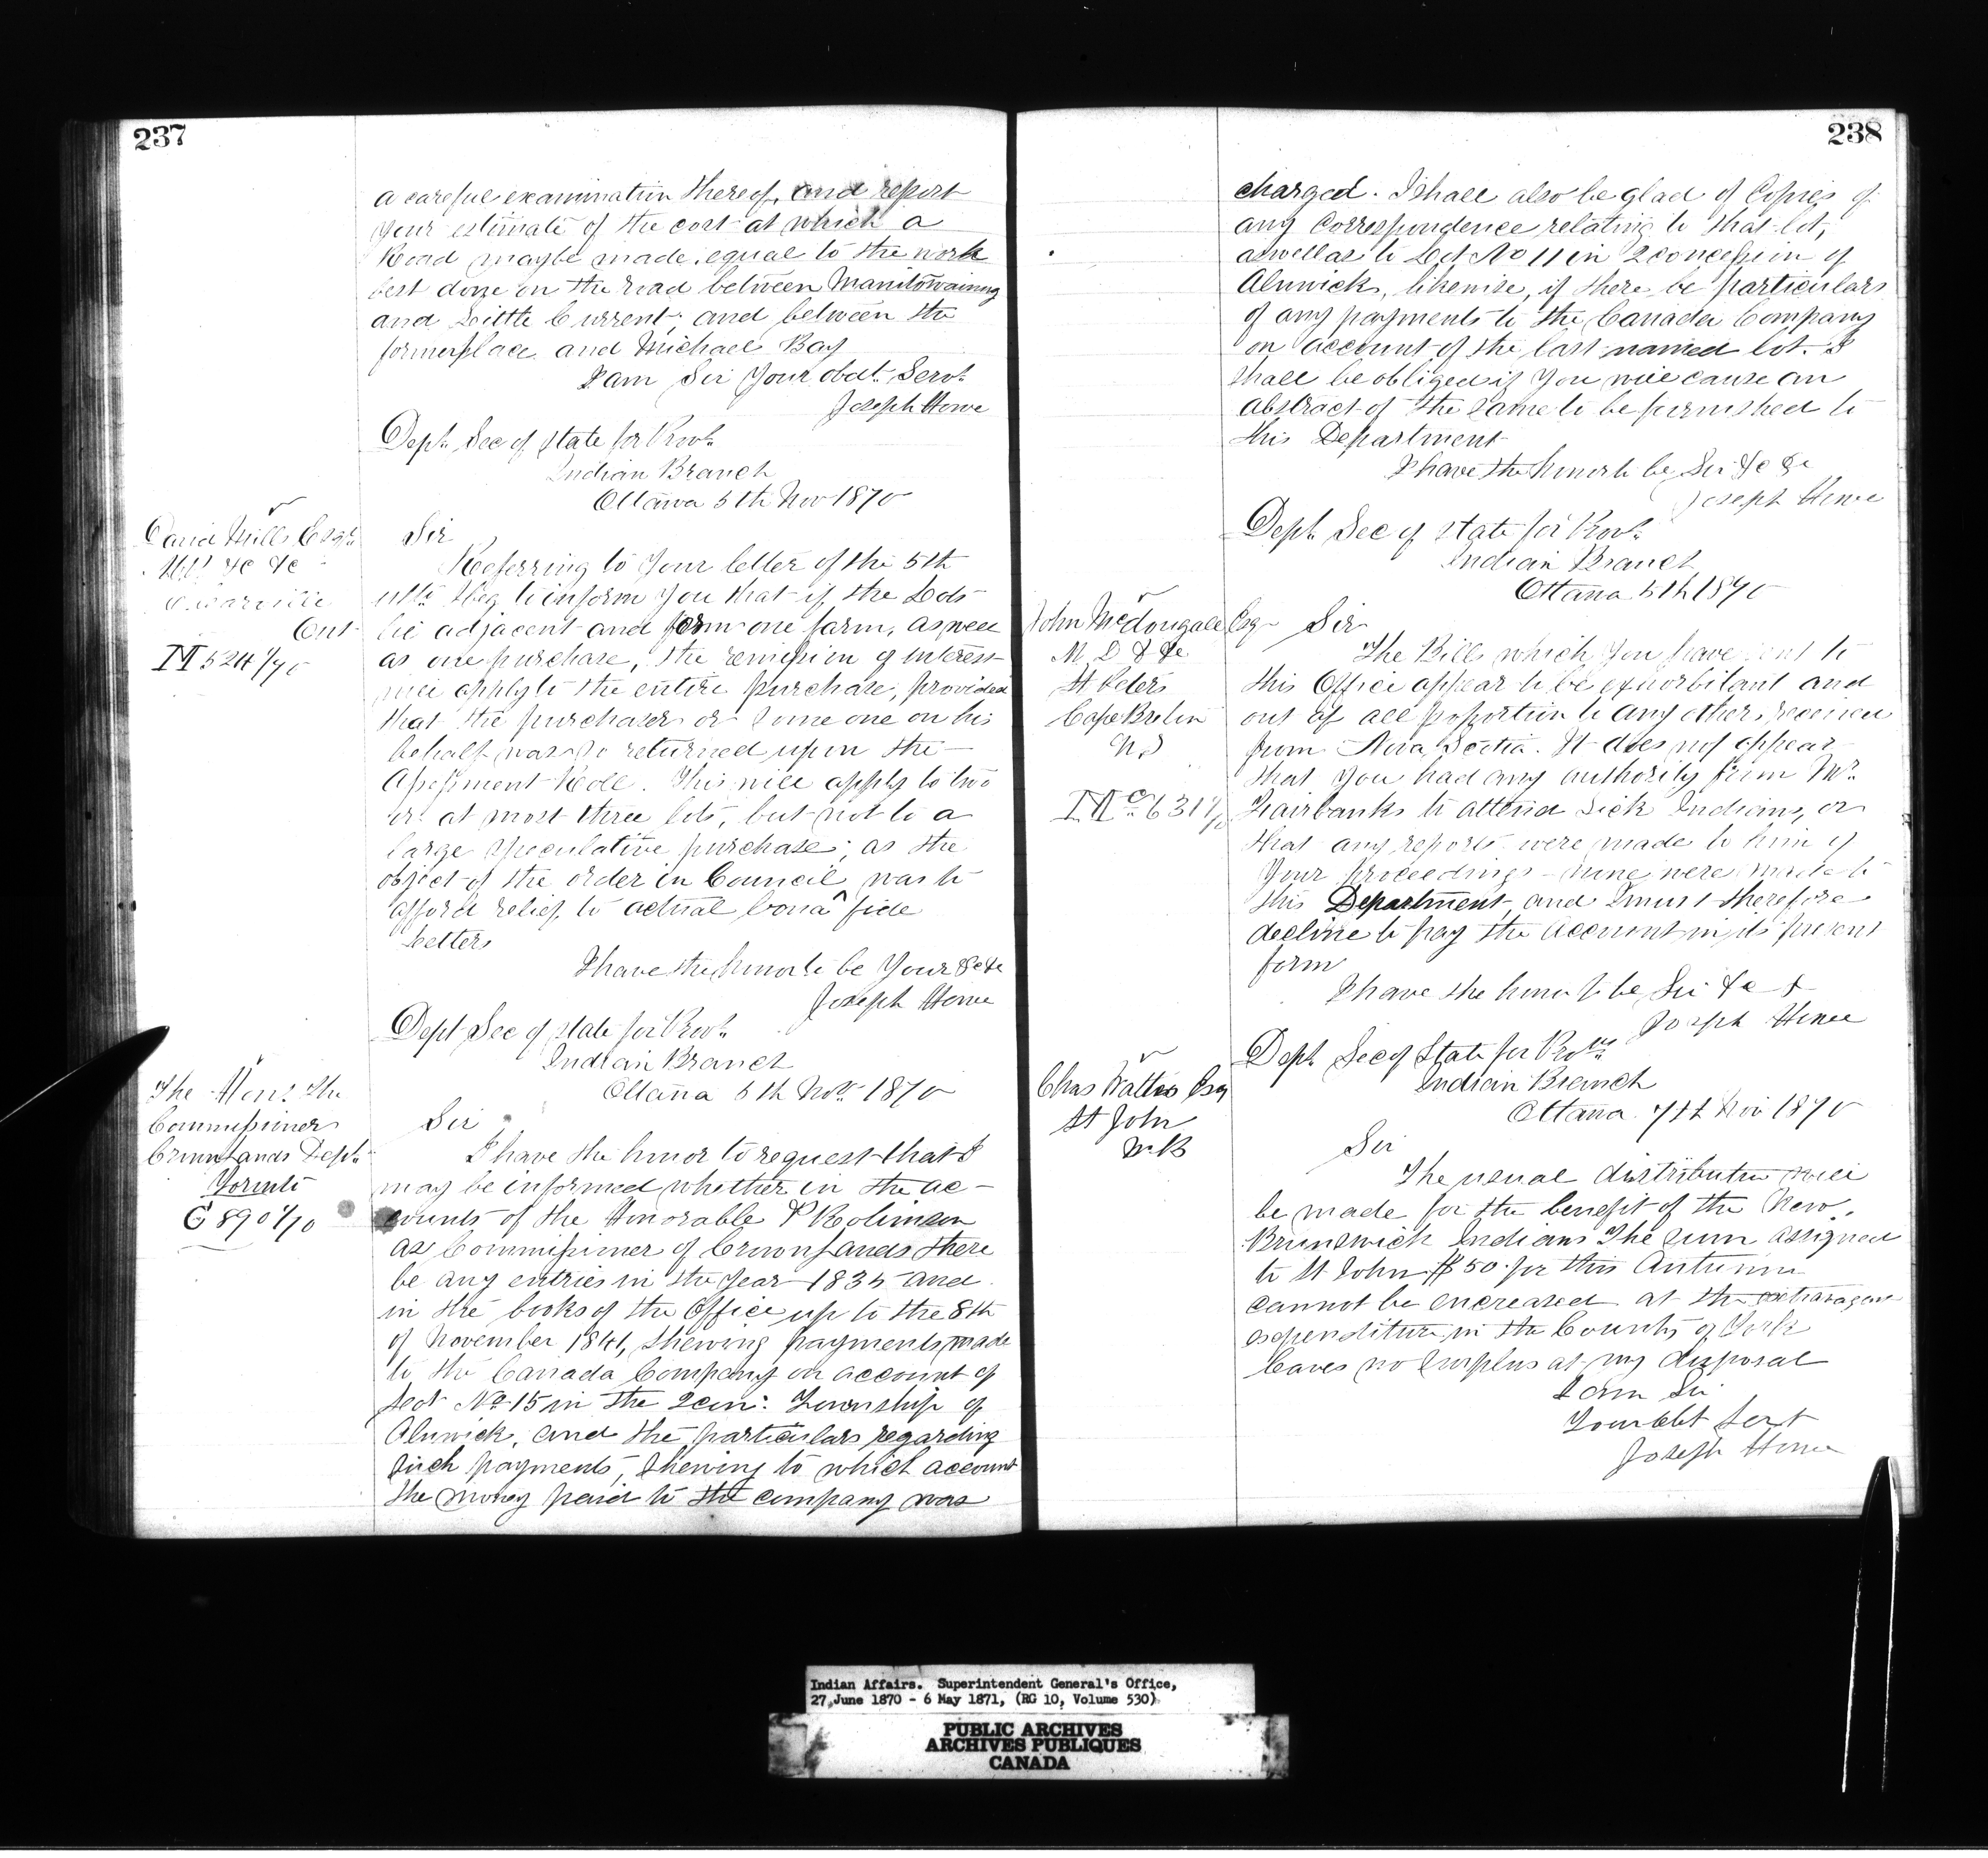 237
a careful examination thereof, and report
your estimate of the cost at which a
Road may be made, equal to the work
best done on the road between Manitowaning
and Little Current, and between the
former place and Michael Bay
I am Sir Your obdt. Servt.
Joseph Howe
Dept. Sec of State for Provs.
Indian Branch
Ottawa 5th Nov 1870
David Mills Esqr.
M.P. &c &c
Ont
M 524/70
Sir
Referring to your letter of the 5th
ulto. I beg to inform you that if the Lots
lie adjacent and form one farm, as well
as one purchase, the remission of interest
will apply to the entire purchase, provided
that the purchaser or some one on his
behalf was so returned upon the
Assessment Roll. This will apply to two
or at most three lots, but not to a
large speculative purchase; as the
object of the order in Council was to
afford relief to actual bona fide
Settlers
I have the honor to be Your &c &c
Joseph Howe
Dept Sec of State for Provs.
Indian Branch
Ottawa 5th Nov. 1870
The Honl. The
Commissioner
Crown Lands Dept.
Toronto
C 890/70
Sir
I have the honor to request that I
may be informed whether in the ac-
counts of the Honorable P Robinson
as Commissioner of Crown Lands there
be any entries in the year 1835 and
in the books of the Office up to the 8th
of November 1841, shewing payments made
to the Canada Company on account of
Lot No. 15 in the 2 con: Township of
Alnwick, and the particulars regarding
such payments, shewing to which account
the money paid to the company was
238
charged. I shall also be glad of Copies of
any Correspondence relating to that lot,
as well as to Lot No 11 in 2 concession of
Alnwick, likewise, if there be particulars
of any payments to the Canada Company
on account of the last named lot. I
shall be obliged if you will cause an
abstract of the same to be furnished to
this Department
I have the honor to be Sir &c &c
Joseph Howe
Dept. Sec of State for Provs.
Indian Branch
Ottawa 5th 1870
John McDougall Esq
M.D. & &c
St Peters
Cape Breton
N.S
Mc 631/70
Sir
The Bills which you have sent to
this Office appear to be exorbitant and
out of all proportion to any other received
from Nova Scotia. It does not appear
that you had any authority from Mr.
Fairbanks to attend sick Indians, or
that any reports were made to him of
Your proceedings - none were made to
this Department, and I must therefore
decline to pay the Account in its present
form
I have the honor to be Sir &c &
Joseph Howe
Dept. Sec of State for Provs.
Indian Branch
Ottawa 7th Nov 1870
Chas Watters Esq
St John
N.B
Sir
The usual distribution will
be made for the benefit of the New
Brunswick Indians The sum assigned
to St John $50 for this Autumn
cannot be encreased as the extravagant
expenditure in the County of York
leaves no surplus at my disposal
I am Sir
Your obt Servt
Joseph Howe
Indian Affairs. Superintendent General's Office,
27 June 1870 - 6 May 1871, (RG 10, Volume 530)
PUBLIC ARCHIVES
ARCHIVES PUBLIQUES
CANADA